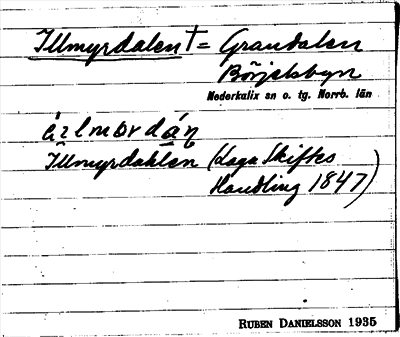 Illmyrdalen † = Grandalen
Börjelsbyn
Nederkalix sn o. tg. Norrb. län
Illmyrdahlen (Laga Skiftes
Handling 1847)
RUBEN DANIELSSON 1935